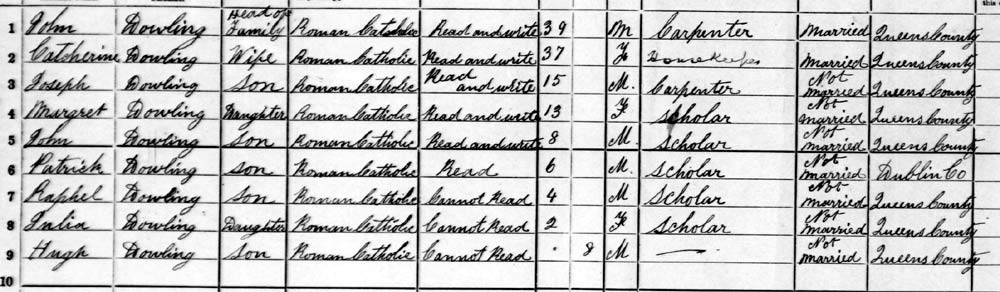 this
1 John Dowling Head of Family Roman Catholic Read and write 39 M Carpenter Married Queens County
2 Catherine Dowling Wife Roman Catholic Read and write 37 F Housekeeper Married Queens County
3 Joseph Dowling Son Roman Catholic Read and write 15 M. Carpenter Not Married Queens County
4 Margret Dowling Daughter Roman Catholic Read and write 13 F Scholar Not Married Queens County
5 John Dowling Son Roman Catholic Read and write 8 M. Scholar Not Married Queens County
6 Patrick Dowling Son Roman Catholic Read 6 M. Scholar Not Married Dublin Co
7 Raphel Dowling Son Roman Catholic Cannot Read 4 M Scholar Not Married Queens County
8 Julia Dowling Daughter Roman Catholic Cannot Read 2 F Scholar Not Married Queens County
9 Hugh Dowling Son Roman Catholic Cannot Read . 8 M — Not Married Queens County
10